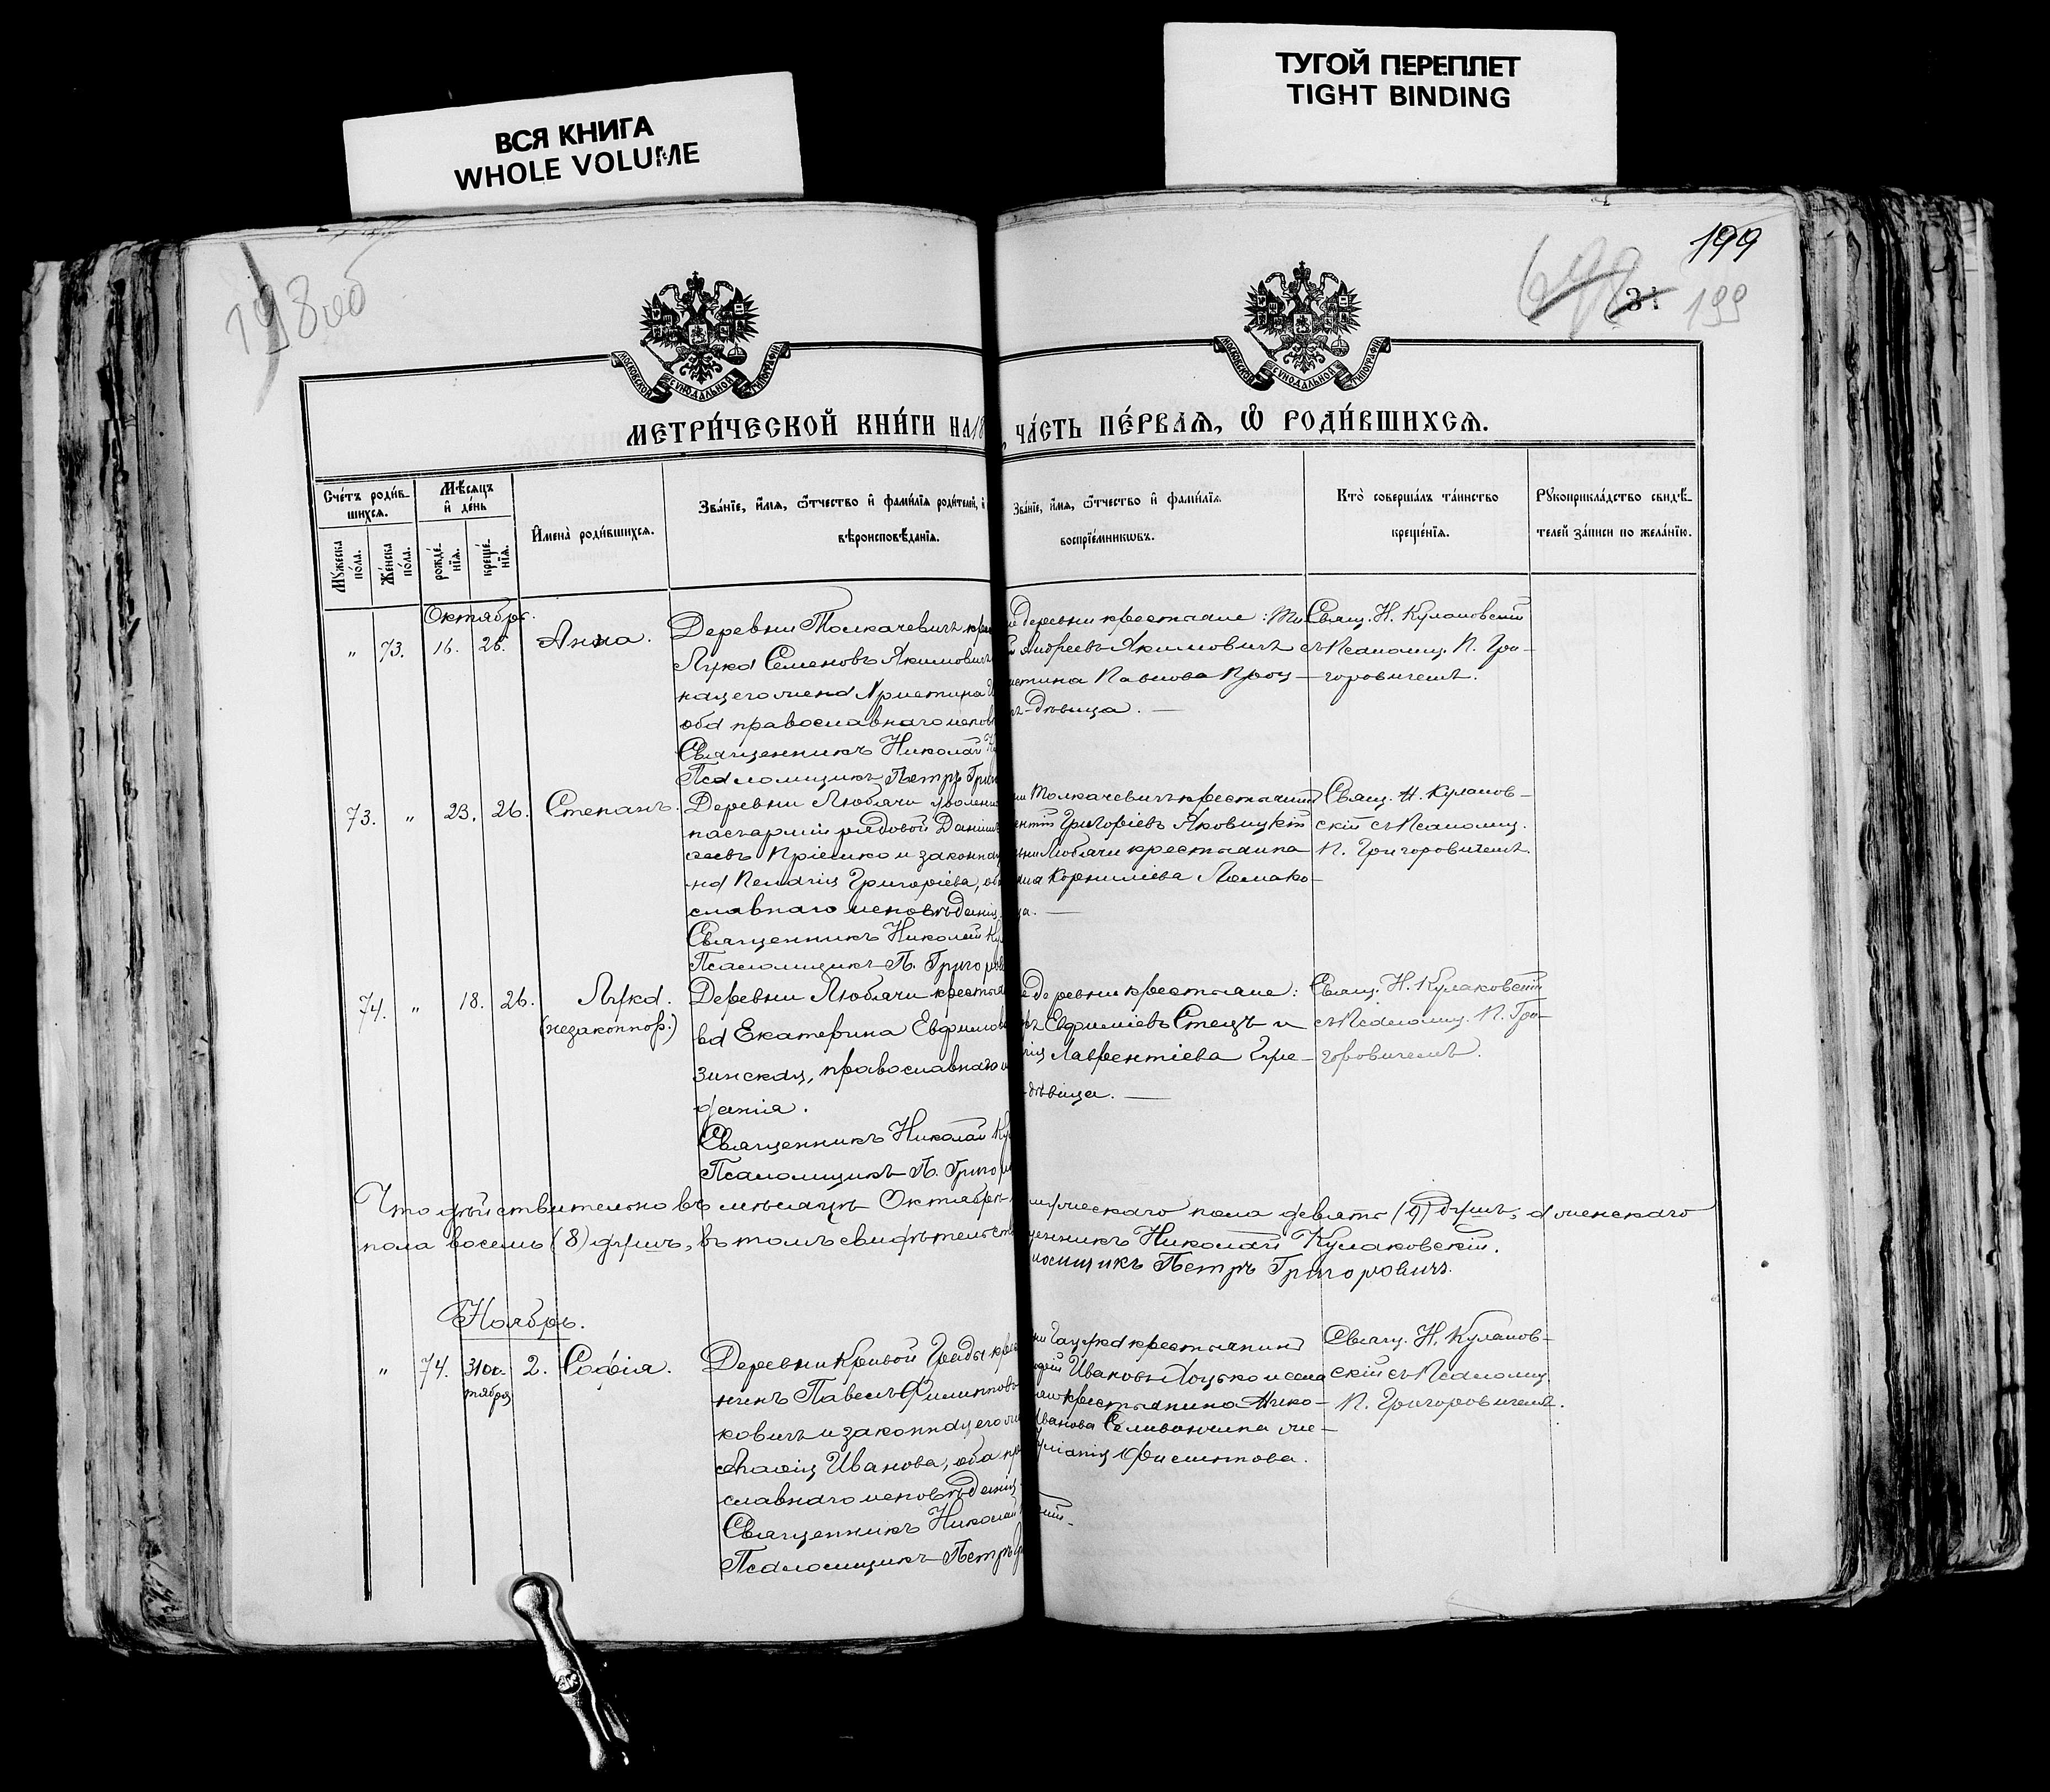 ВСЯ КНИГА
WHOLE VOLUME
ТУГОЙ ПЕРЕПЛЕТ
TIGHT BINDING
198 об
199
199
МОСКОВСКОЙ СѴНОДАЛЬНОЙ ТИПОГРАФІИ
МОСКОВСКОЙ СѴНОДАЛЬНОЙ ТИПОГРАФІИ
МЕТРИ́ЧЕСКОЙ КНИ́ГИ НА 18
ЧА́СТЬ ПЕ́РВАЯ, Ѽ РОДИ́ВШИХСЯ.
Сче́тъ роди́в-
шихся.
Мѣсяцъ
и҆ де́нь
Му́жеска по́ла.
Же́нска по́ла.
рожде́нїя.
креще́нїя.
И҆мена̀ роди́вшихся.
Зва́нїе, и҆́мя, ѻ҆́тчество и҆ фами́лїя роди́телей, и҆
вѣроисповѣ́данїя.
Зва́нїе, и҆́мя, ѻ҆́тчество и҆ фами́лїя
воспрїе́мниковъ.
Кто̀ соверша́лъ та́инство
креще́нїя.
Рꙋкоприкла́дство свидѣ́-
телей за́писи по жела́нїю.
Октябрь.
" 73. 16. 26. Анна.
Деревни Толкачевичъ кре
Лука Семеновъ Якимовичъ
ная его жена Христина И
оба православнаго испов
Священникъ Николай К
Псаломщикъ Петръ Григ
деревни крестьяне:
Андреевъ Якимовичъ
истина Павлова Проц-
ъ-дѣвица. —
Свящ. Н. Кулаковскій
съ Псаломщ. П. Гри-
горовичемъ.
73. " 23. 26. Степанъ.
Деревни Любачи уволенн
пасъ арміи рядовой Даніилъ
и законная
на Пелагія Григоріева, об
славнаго исповѣданія.
Священникъ Николай Ку
Псаломщикъ П. Григоров
Толкачевичъ крестьянинъ
ентій Григоріевъ Яковицкій
вни Любачи крестьянина
Корниліева
ца. —
Свящ. Н. Кулаков-
скій съ Псаломщ.
П. Григоровичемъ.
74. " 18. 26. Лука.
(незаконнор.)
Деревни Любачи крестья
ва Екатерина Евфимов
зинская, православнаго и
данія.
Священникъ Николай Ку
Псаломщикъ П. Григоров
е деревни крестьяне:
Евфиміевъ Стецъ и
Лаврентіева
-дѣвица. —
Свящ. Н. Кулаковскій
съ Псаломщ. П. Гри-
горовичемъ.
Что дѣйствительно въ мѣсяцѣ Октябрѣ
мужескаго пола девять (9) душъ, а женскаго
пола восемь (8) душъ, въ томъ свидѣтельств
щенникъ Николай Кулаковскій.
ломщикъ Петръ Григоровичъ.
Ноябрь.
" 74. 31 Ок-
тября 2. Софія.
Деревни Кривой Гряды крес
нинъ Павелъ Филиппов
ковичъ и законная его же
Иванова, оба пр
славнаго исповѣданія
Священникъ Николай
Псаломщикъ Петръ Гр
крестьянинъ
Ивановъ и села
крестьянина Нико-
Иванова же-
Филиппова.
Свящ. Н. Кулаков-
скій съ Псаломщ.
П. Григоровичемъ.